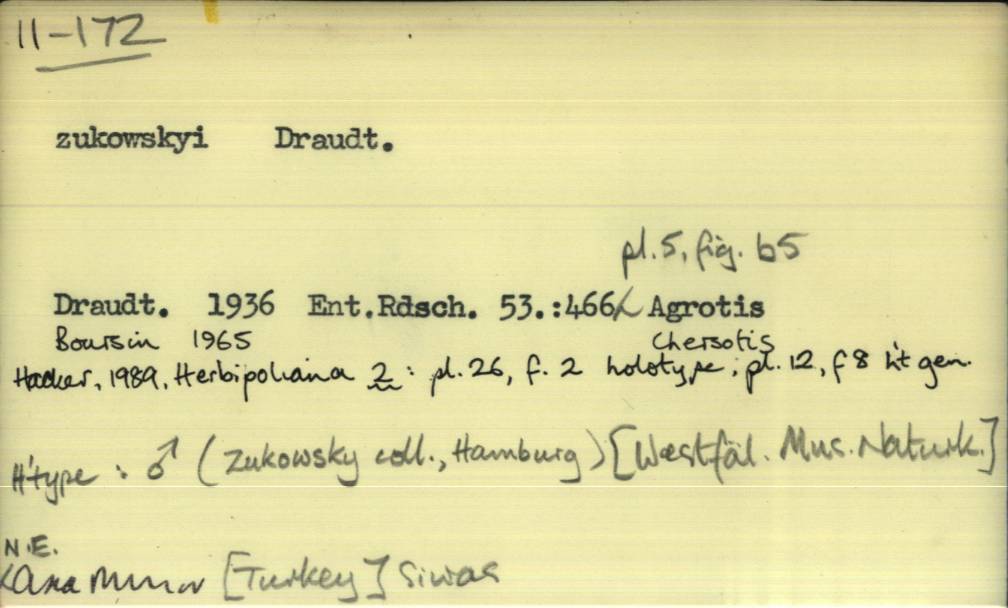 11-172
zukowskyi Draudt.
pl.5, fig. b5
Draudt. 1936 Ent.Rdsch. 53.:466 Agrotis
Boursin 1965 Chersotis
Hacker, 1989, Herbipoliana 2: pl.26, f. 2 holotype; pl.12, f 8 h't gen.
H'type: ♂ (Zukowsky coll., Hamburg) [Westfäl. Mus. Naturk.]
N.E.
Asia Minor [Turkey] Siwas